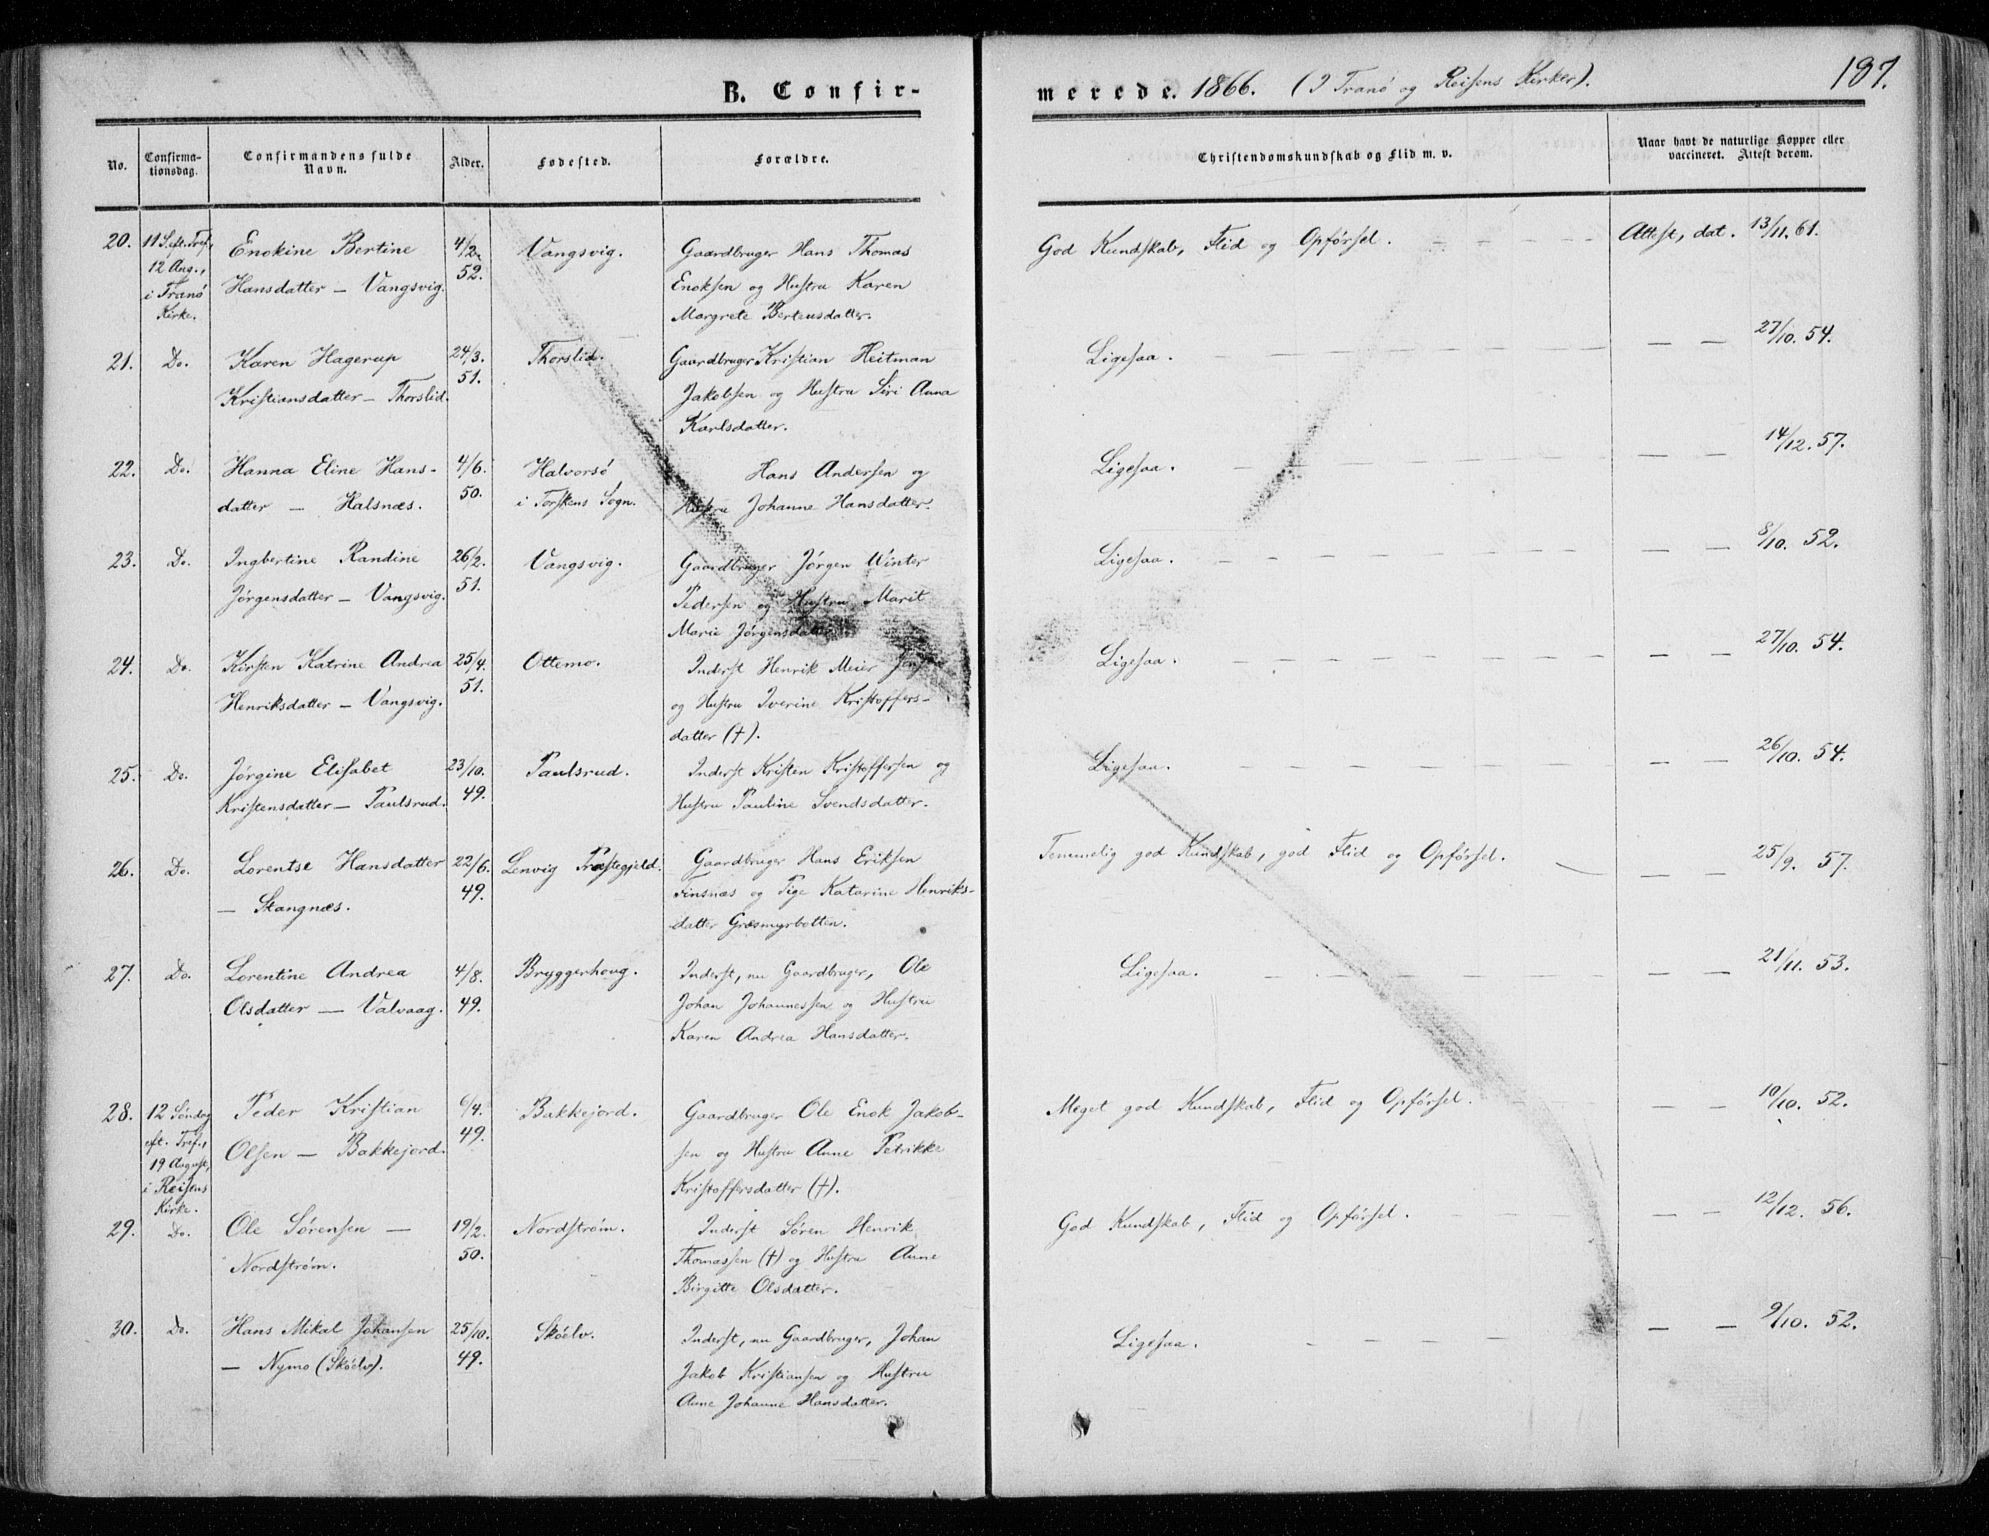 B. Confirmerede. 1866. (I Tranø og Reisens Kirker). 187.
No. Confirmationsdag. Confirmandens fulde Navn. Alder. Fødested. Forældre. Christendomskundskab og Flid m. v. Naar havt de naturlige Kopper eller vaccineret. Attest derom.
20. 11 S. eft. Tref., Enokine Bertine 4/2. Vangsvig. Gaardbruger Hans Thomas God Kundskab, Flid og Opførsel. Attest, dat. 13/11. 61.
12 Aug., Hansdatter – Vangsvig. 52. Enoksen og Hustru Karen
i Tranö Kirke. Margrete Berteusdatter.
21. Do. Karen Hagerup 24/3. Thorslid. Gaardbruger Kristian Heitman Ligesaa. — — 27/10. 54.
Kristiansdatter – Thorslid. 51. Jakobsen og Hustru Siri Anna
Karlsdatter.
22. Do. Hanna Eline Hans- 4/6. Halvorsö Hans Andersen og Ligesaa. 14/12. 57.
datter – Halsnæs. 50. i Torskens Sogn. Hustru Johanne Hansdatter.
23. Do. Ingbertine Randine 26/2. Vangsvig. Gaardbruger Jørgen Winter Ligesaa. — — 8/10. 52.
Jørgensdatter – Vangsvig. 51. Pedersen og Hustru Marit
Marie Jørgensdatter.
24. Do. Kirsten Katrine Andrea 25/4. Ottemo. Inderst Henrik Meier Ligesaa. — — 27/10. 54.
Henriksdatter – Vangsvig. 51. og Hustru Iverine Kristoffers-
datter (†).
25. Do. Jørgine Elisabet 23/10. Paulsrud. Inderst Kristen Kristoffersen og Ligesaa. — — 26/10. 54.
Kristensdatter – Paulsrud. 49. Hustru Pauline Svendsdatter.
26. Do. Lorentse Hansdatter 22/6. Lenvig Præstegjeld. Gaardbruger Hans Eriksen Temmelig god Kundskab, god Flid og Opførsel. — — 25/9. 57.
– Stangnæs. 49. Finsnæs og Pige Katarine Henriks-
datter Græsmyrbotten.
27. Do. Lorentine Andrea 4/8. Bryggerhoug. Inderst, nu Gaardbruger, Ole Ligesaa. — — 21/11. 53.
Olsdatter – Valvaag. 49. Johan Johannessen og Hustru
Karen Andrea Hansdatter.
28. 12 Søndag Peder Kristian 6/4. Bakkejord. Gaardbruger Ole Enok Jakob- Meget god Kundskab, Flid og Opførsel. — — 10/10. 52.
eft. Tref., Olsen – Bakkejord. 49. sen og Hustru Anne Petrikke
19 August, i Reisens Kirke. Kristoffersdatter (†).
29. Do. Ole Sørensen – 19/2. Nordstrøm. Inderst Søren Henrik God Kundskab, Flid og Opførsel. — — 12/12. 56.
Nordstrøm. 50. Thomassen (†) og Hustru Anne
Birgitte Olsdatter.
30. Do. Hans Mikal Johansen 25/10. Sköelv. Inderst, nu Gaardbruger, Johan Ligesaa. — — 9/10. 52.
– Nymo (Sköelv). 49. Jakob Kristiansen og Hustru
Anne Johanne Hansdatter.